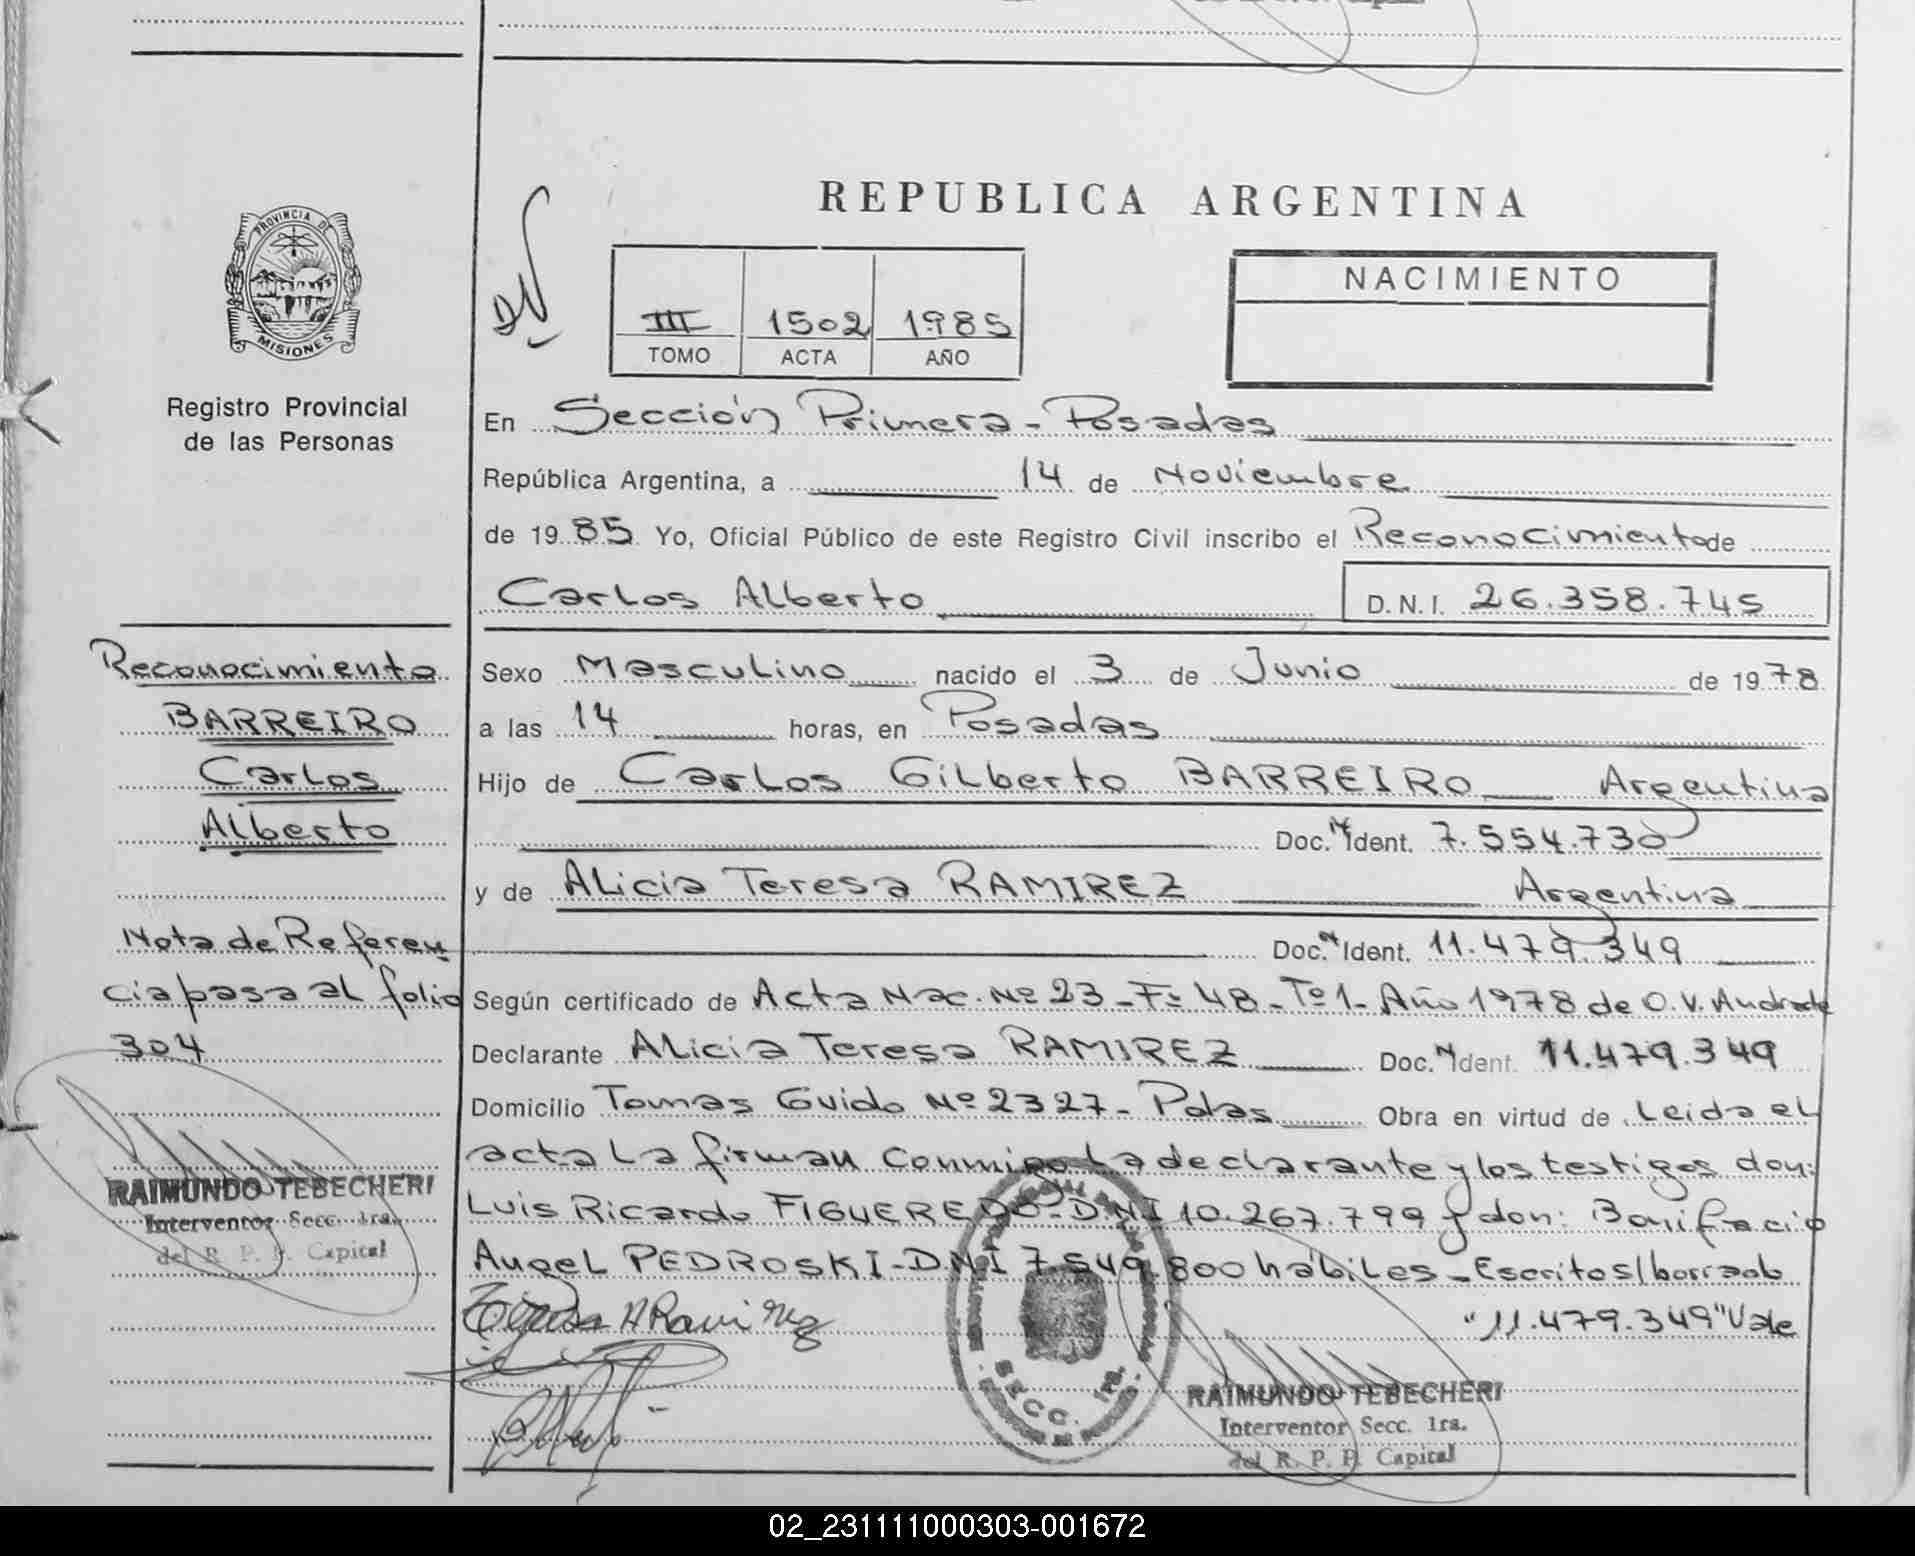 REPUBLICA ARGENTINA
PROVINCIA DE
MISIONES
Registro Provincial
de las Personas
III 1502 1985
TOMO ACTA AÑO
NACIMIENTO
En Sección Primera - Posadas
República Argentina, a 14 de Noviembre
de 1985 Yo, Oficial Público de este Registro Civil inscribo el Reconocimiento de
Carlos Alberto D.N.I. 26.358.745
Reconocimiento
BARREIRO
Carlos
Alberto
Nota de Referen
cia pasa al folio
304
RAIMUNDO TEBECHERI
Interventor Secc. 1ra.
del R. P. P. Capital
Sexo Masculino nacido el 3 de Junio de 1978
a las 14 horas, en Posadas
Hijo de Carlos Gilberto BARREIRO Argentina
Doc. N Ident. 7.554.730
y de Alicia Teresa RAMIREZ Argentina
Doc. N Ident. 11.479.349
Según certificado de Acta Nac. Nº 23 - Fº 48 - Tº 1 - Año 1978 de O.V. Andrade
Declarante Alicia Teresa RAMIREZ Doc. N Ident. 11.479.349
Domicilio Tomas Guido Nº 2327 - Pdas Obra en virtud de Leida el
acta la firman conmigo la declarante y los testigos don:
Luis Ricardo FIGUEREDO - DNI 10.267.799 y don: Bonifacio
Angel PEDROSKI - DNI 7.549.800 hábiles - Escritos/borrado
"11.479.349" Vale
SECC. 1ra.
RAIMUNDO TEBECHERI
Interventor Secc. 1ra.
del R. P. P. Capital
02_231111000303-001672